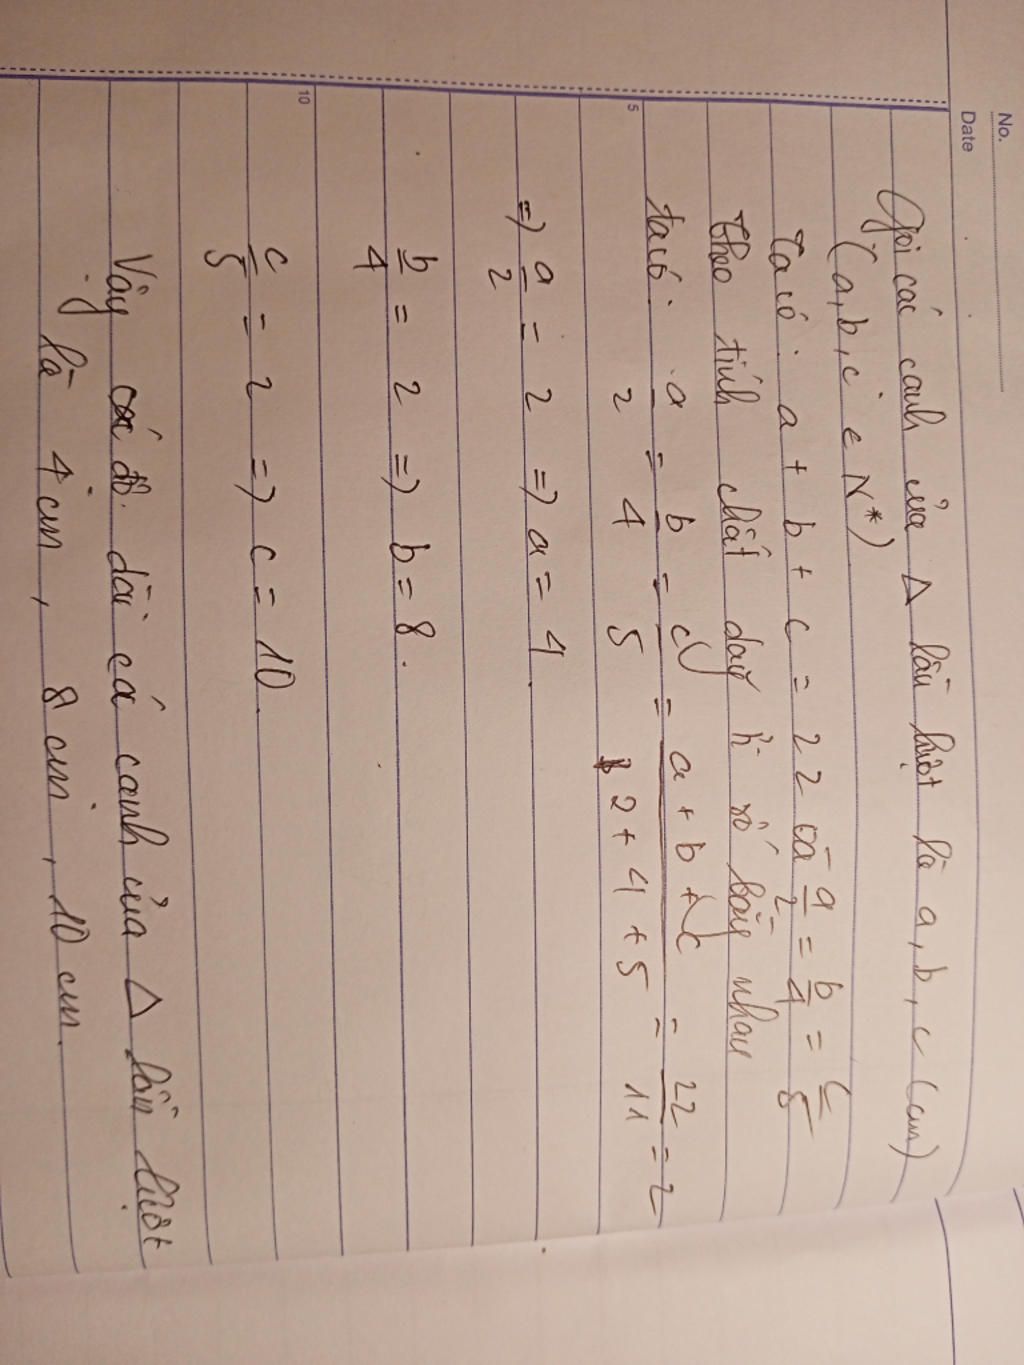 No.
Date
Gọi các cạnh của Δ lần lượt là a, b, c (cm)
(a, b, c ∈ N*)
Ta có: a + b + c = 22 và a/2 = b/4 = c/5
Theo tính chất dãy tỉ số bằng nhau
5
ta có: a/2 = b/4 = c/5 = (a + b + c)/(2 + 4 + 5) = 22/11 = 2
=> a/2 = 2 => a = 4.
b/4 = 2 => b = 8.
10
c/5 = 2 => c = 10.
Vậy độ dài cá cạnh của Δ lần lượt
là 4 cm, 8 cm, 10 cm.